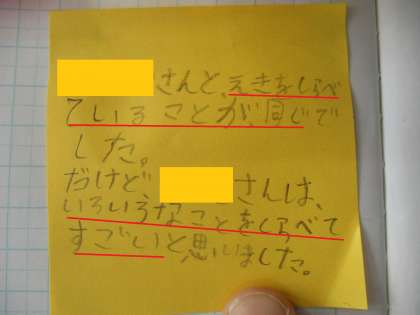 さんと、えきをしらべ
ていることが、同じで
した。
だけど、さんは、
いろいろなことをしらべて
すごいと思いました。